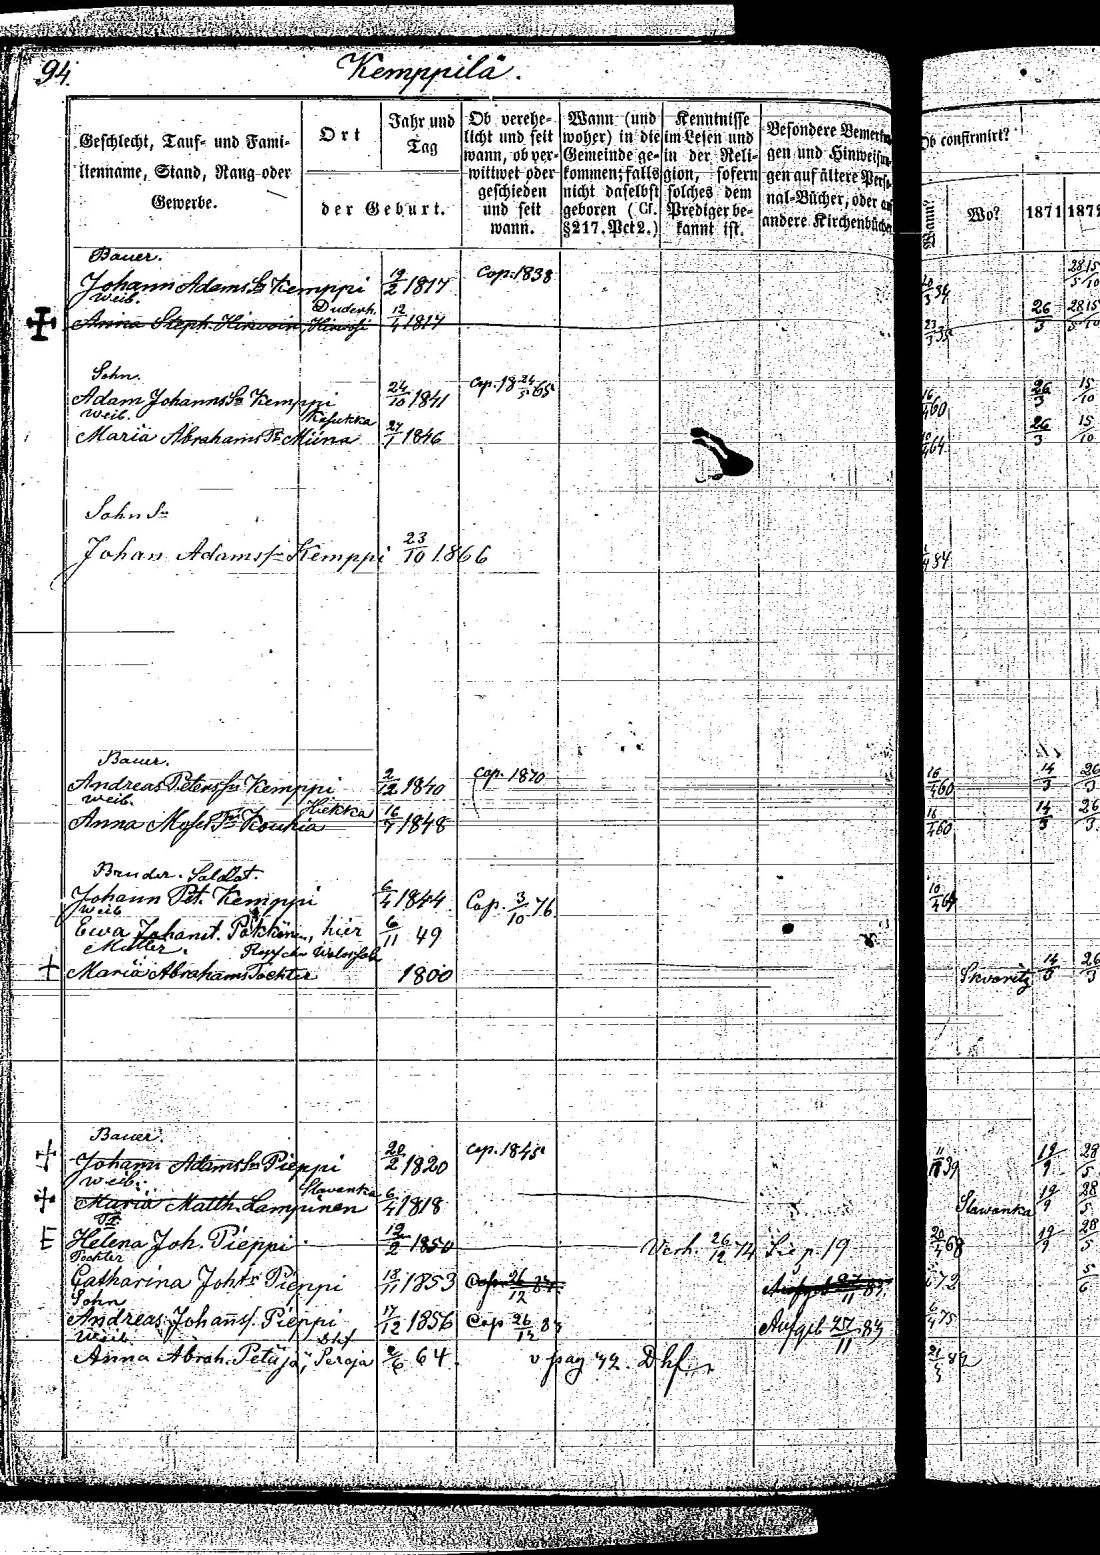 94.
Kemppilä.
Geschlecht, Tauf- und Fami-
lienname, Stand, Rang oder
Gewerbe.
Ort
Jahr und
Tag
der Geburt.
Ob verehe-
licht und seit
wann, ob ver-
wittwet oder
geschieden
und seit
wann.
Wann (und
woher) in die
Gemeinde ge-
kommen; falls
nicht daselbst
geboren (Cf.
§ 217. Pct 2.)
Kenntnisse
im Lesen und
in der Reli-
gion, sofern
solches dem
Prediger be-
kannt ist.
Besondere Bemerkun
gen und Hinweisun-
gen auf ältere Perso-
nal-Bücher, oder an
andere Kirchenbüche
Ob confirmirt?
Wann?
Wo?
1871
1872
Bauer.
Johann Adams Sn Kemppi 19/2 1817 Cop. 1838
Weib. Duderh.
Anna Steph. Hirwoin, Hirwosi 12/4 1817 26/3
Sohn.
Adam Johanns Sn Kemppi 24/10 1841 Cop. 18 24/5 65 16/4 60 26/3 15/10
Weib.
Maria Abrahams Tr Miina 27/1 1846 26/3 15/10
Sohn Sn
Johan Adams Sn Kemppi 23/10 1866
Bauer.
Andreas Peters Sn Kemppi 2/12 1840 Cop. 1870 16/4 60 14/3 26/3
Weib. Hiekka
Anna Mos. Tr Koukia 1848 16/4 60 14/3 26/3
Bruder. Soldat.
Johann Pet. Kemppi 6/4 1844 Cop. 3/10 76
Weib
Ewa Johanst. Pökkönen, hier 6/11 49
Mutter.
Maria Abrahams Tochter 1800 Skvoritz 26/3
Bauer.
Johann Adams Sn Pieppi 20/2 1820 Cop. 1845 19/9 28/5
Weib. Slavanka
Maria Matth. Lampinen 6/4 1818 Slawanka 19/9 28/5
Tr.
Helena Joh. Pieppi 1850 Verh. 26/12 74 20/4 68 19/9 28/5
Tochter
Catharina Johts Pieppi 13/11 1853 Cop. 26/12 Aufgeb 27/11 83.
Sohn
Andreas Johanns. Pieppi 17/12 1856 Cop 26/12 83 Aufgeb 27/11 83
Weib Dhf
Anna Abrah. Petäjä, Peraja 64. v pag 42. Dhf.